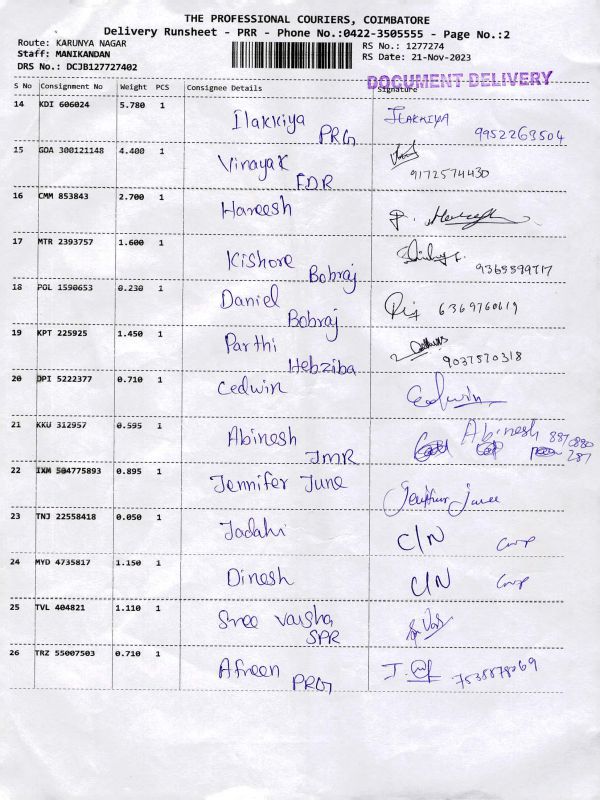 THE PROFESSIONAL COURIERS, COIMBATORE
Delivery Runsheet - PRR - Phone No.:0422-3505555 - Page No.:2
Route: KARUNYA NAGAR RS No.: 1277274
Staff: MANIKANDAN RS Date: 21-Nov-2023
DRS No.: DCJB127727402
DOCUMENT DELIVERY
S No Consignment No Weight PCS Consignee Details Signature
14 KDI 606024 5.780 1 Ilakkiya PRG ILAKKIYA 9952263504
15 GOA 300121148 4.400 1 Vinayak EDR 9172574430
16 CMM 853843 2.700 1 Hareesh
17 MTR 2393757 1.600 1 Kishore Bobraj
18 POL 1590653 0.230 1 Daniel Bobraj 6369760619
19 KPT 225925 1.450 1 Parthi Hebziba 9037570318
20 DPI 5222377 0.710 1 Cedwin Cedwin
21 KKU 312957 0.595 1 Abinesh JMR Abinesh 887088 287
22 IXM 504775893 0.895 1 Jennifer June Jenifur June
23 TNJ 22558418 0.050 1 Jadahi C/N
24 MYD 4735817 1.150 1 Dinesh C/N
25 TVL 404821 1.110 1 Sree Varsha SPR
26 TRZ 55007503 0.710 1 Afreen PRG